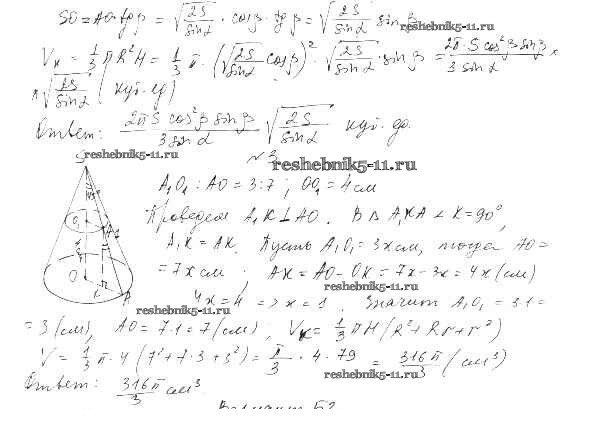 SO = AO·tgβ = √(2S/sinα) · cosβ · tgβ = √(2S/sinα) sinβ
reshebnik5-11.ru
Vк = 1/3 πR²H = 1/3 π · (√(2S/sinα) cosβ)² · √(2S/sinα) · sinβ = 2π·S cos²β sinβ / 3 sinα ×
× √(2S/sinα) (куб. ед)
Ответ: 2πS cos²β sinβ / 3 sinα √(2S/sinα) куб. ед.
№3
reshebnik5-11.ru
reshebnik5-11.ru
A₁O₁ : AO = 3:7 ; OO₁ = 4 см
Проведем A₁K ⊥ AO. В Δ A₁KA ∠K = 90°,
A₁K = AK. Пусть A₁O₁ = 3x см, тогда AO =
= 7x см. AK = AO − OK = 7x − 3x = 4x (см)
reshebnik5-11.ru
4x = 4 => x = 1. Значит A₁O₁ = 3·1 =
reshebnik5-11.ru
= 3 (см), AO = 7·1 = 7 (см); Vк = 1/3 πH (R² + Rr + r²)
V = 1/3 π · 4 (7² + 7·3 + 3²) = π/3 · 4 · 79 = 316π/3 (см³)
reshebnik5-11.ru
Ответ: 316π/3 см³
S
O₁
A₁
O
K
A